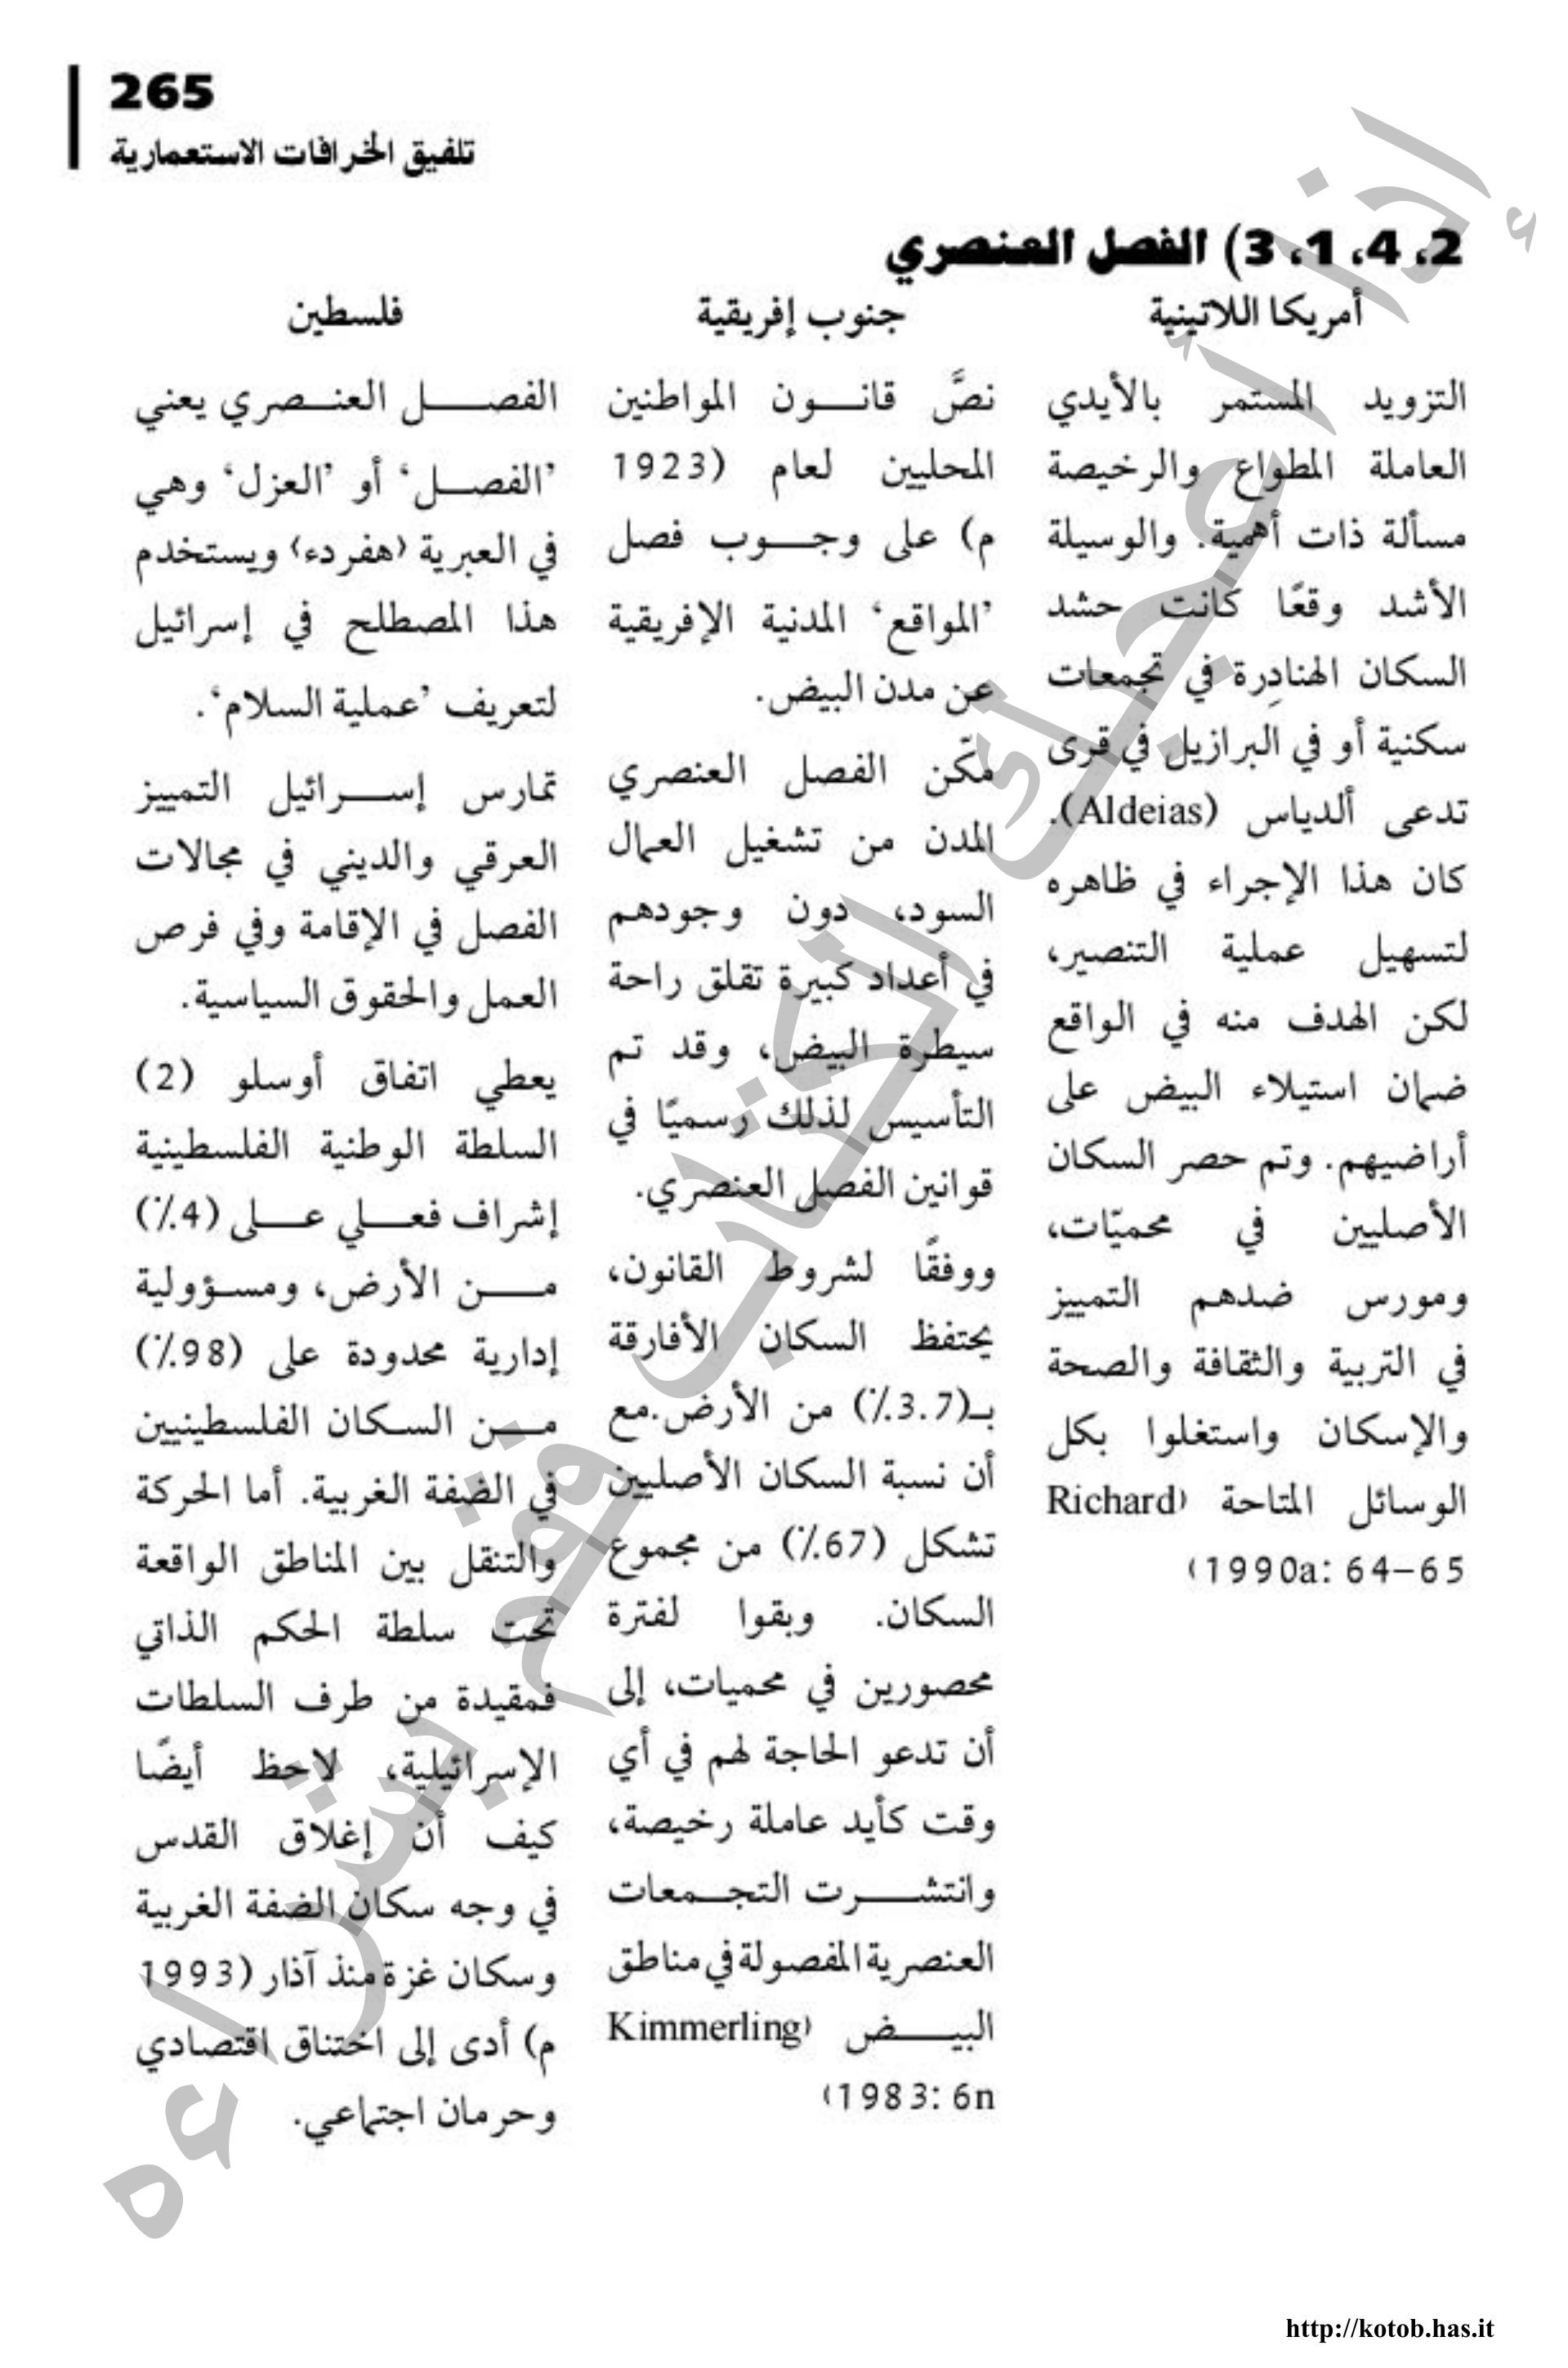 265
تلفيق الخرافات الاستعمارية
2، 4، 1، 3) الفصل العنصري
أمريكا اللاتينية
التزويد المستمر بالأيدي
العاملة المطواع والرخيصة
مسألة ذات أهمية. والوسيلة
الأشد وقعًا كانت حشد
السكان الهنادِرة في تجمعات
سكنية أو في البرازيل في قرى
تدعى ألدياس (Aldeias).
كان هذا الإجراء في ظاهره
لتسهيل عملية التنصير،
لكن الهدف منه في الواقع
ضمان استيلاء البيض على
أراضيهم. وتم حصر السكان
الأصليين في محميّات،
ومورس ضدهم التمييز
في التربية والثقافة والصحة
والإسكان واستغلوا بكل
الوسائل المتاحة (Richard
1990a: 64–65)
جنوب إفريقية
نصَّ قانون المواطنين
المحليين لعام (1923
م) على وجوب فصل
’المواقع‘ المدنية الإفريقية
عن مدن البيض.
مكّن الفصل العنصري
المدن من تشغيل العمال
السود، دون وجودهم
في أعداد كبيرة تقلق راحة
سيطرة البيض، وقد تم
التأسيس لذلك رسميًا في
قوانين الفصل العنصري.
ووفقًا لشروط القانون،
يحتفظ السكان الأفارقة
بـ(3.7٪) من الأرض.مع
أن نسبة السكان الأصليين
تشكل (67٪) من مجموع
السكان. وبقوا لفترة
محصورين في محميات، إلى
أن تدعو الحاجة لهم في أي
وقت كأيد عاملة رخيصة،
وانتشرت التجمعات
العنصرية المفصولة في مناطق
البيض (Kimmerling
1983: 6n)
فلسطين
الفصل العنصري يعني
’الفصل‘ أو ’العزل‘ وهي
في العبرية (هفردء) ويستخدم
هذا المصطلح في إسرائيل
لتعريف ’عملية السلام‘.
تمارس إسرائيل التمييز
العرقي والديني في مجالات
الفصل في الإقامة وفي فرص
العمل والحقوق السياسية.
يعطي اتفاق أوسلو (2)
السلطة الوطنية الفلسطينية
إشراف فعلي على (4٪)
من الأرض، ومسؤولية
إدارية محدودة على (98٪)
من السكان الفلسطينيين
في الضفة الغربية. أما الحركة
والتنقل بين المناطق الواقعة
تحت سلطة الحكم الذاتي
فمقيدة من طرف السلطات
الإسرائيلية، لاحظ أيضًا
كيف أن إغلاق القدس
في وجه سكان الضفة الغربية
وسكان غزة منذ آذار (1993
م) أدى إلى اختناق اقتصادي
وحرمان اجتماعي.
إذا أعجبك الكتاب فقم بشراءه
http://kotob.has.it